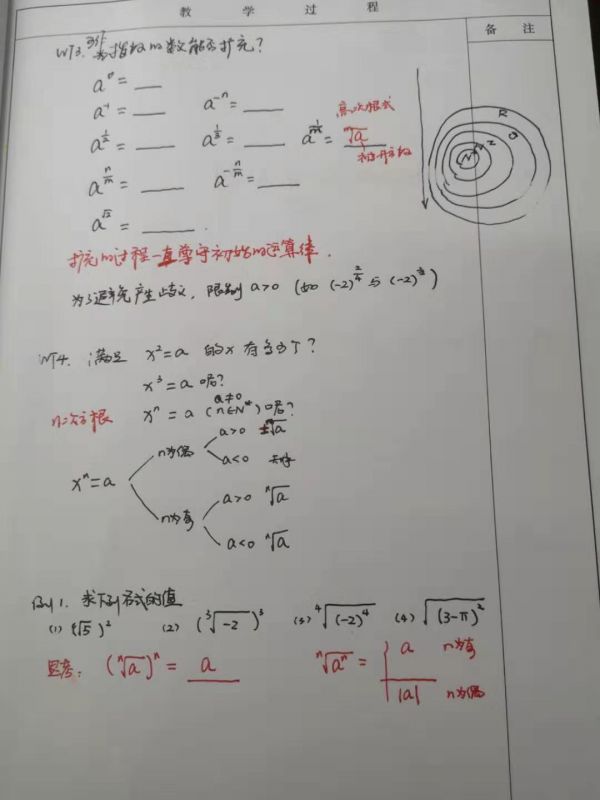 教 学 过 程
备 注
WT3. 指数的数能否扩充?
a⁰ = ___
a⁻¹ = ___ a⁻ⁿ = ___
高次根式
a^{1/2} = ___ a^{1/3} = ___ a^{1/m} = \sqrt[m]{a}
被开方数
a^{n/m} = ___ a^{-n/m} = ___
a^{√2} = ___ .
N Z Q R
扩充的过程一直遵守初始的运算律.
为了避免产生歧义, 限制 a>0 (如 (-2)^{2/4} 与 (-2)^{1/2})
WT4. 满足 x²=a 的x有多少个?
x³=a 呢?
a≠0
n次方根 xⁿ=a (n∈N*) 呢?
xⁿ=a
n为偶 a>0 ±ⁿ√a
a<0
n为奇 a>0 ⁿ√a
a<0 ⁿ√a
例1. 求下列各式的值
(1) (√5)² (2) (³√-2)³ (3) ⁴√(-2)⁴ (4) √(3-π)²
思考: (ⁿ√a)ⁿ = a ⁿ√aⁿ = a n为奇
|a| n为偶